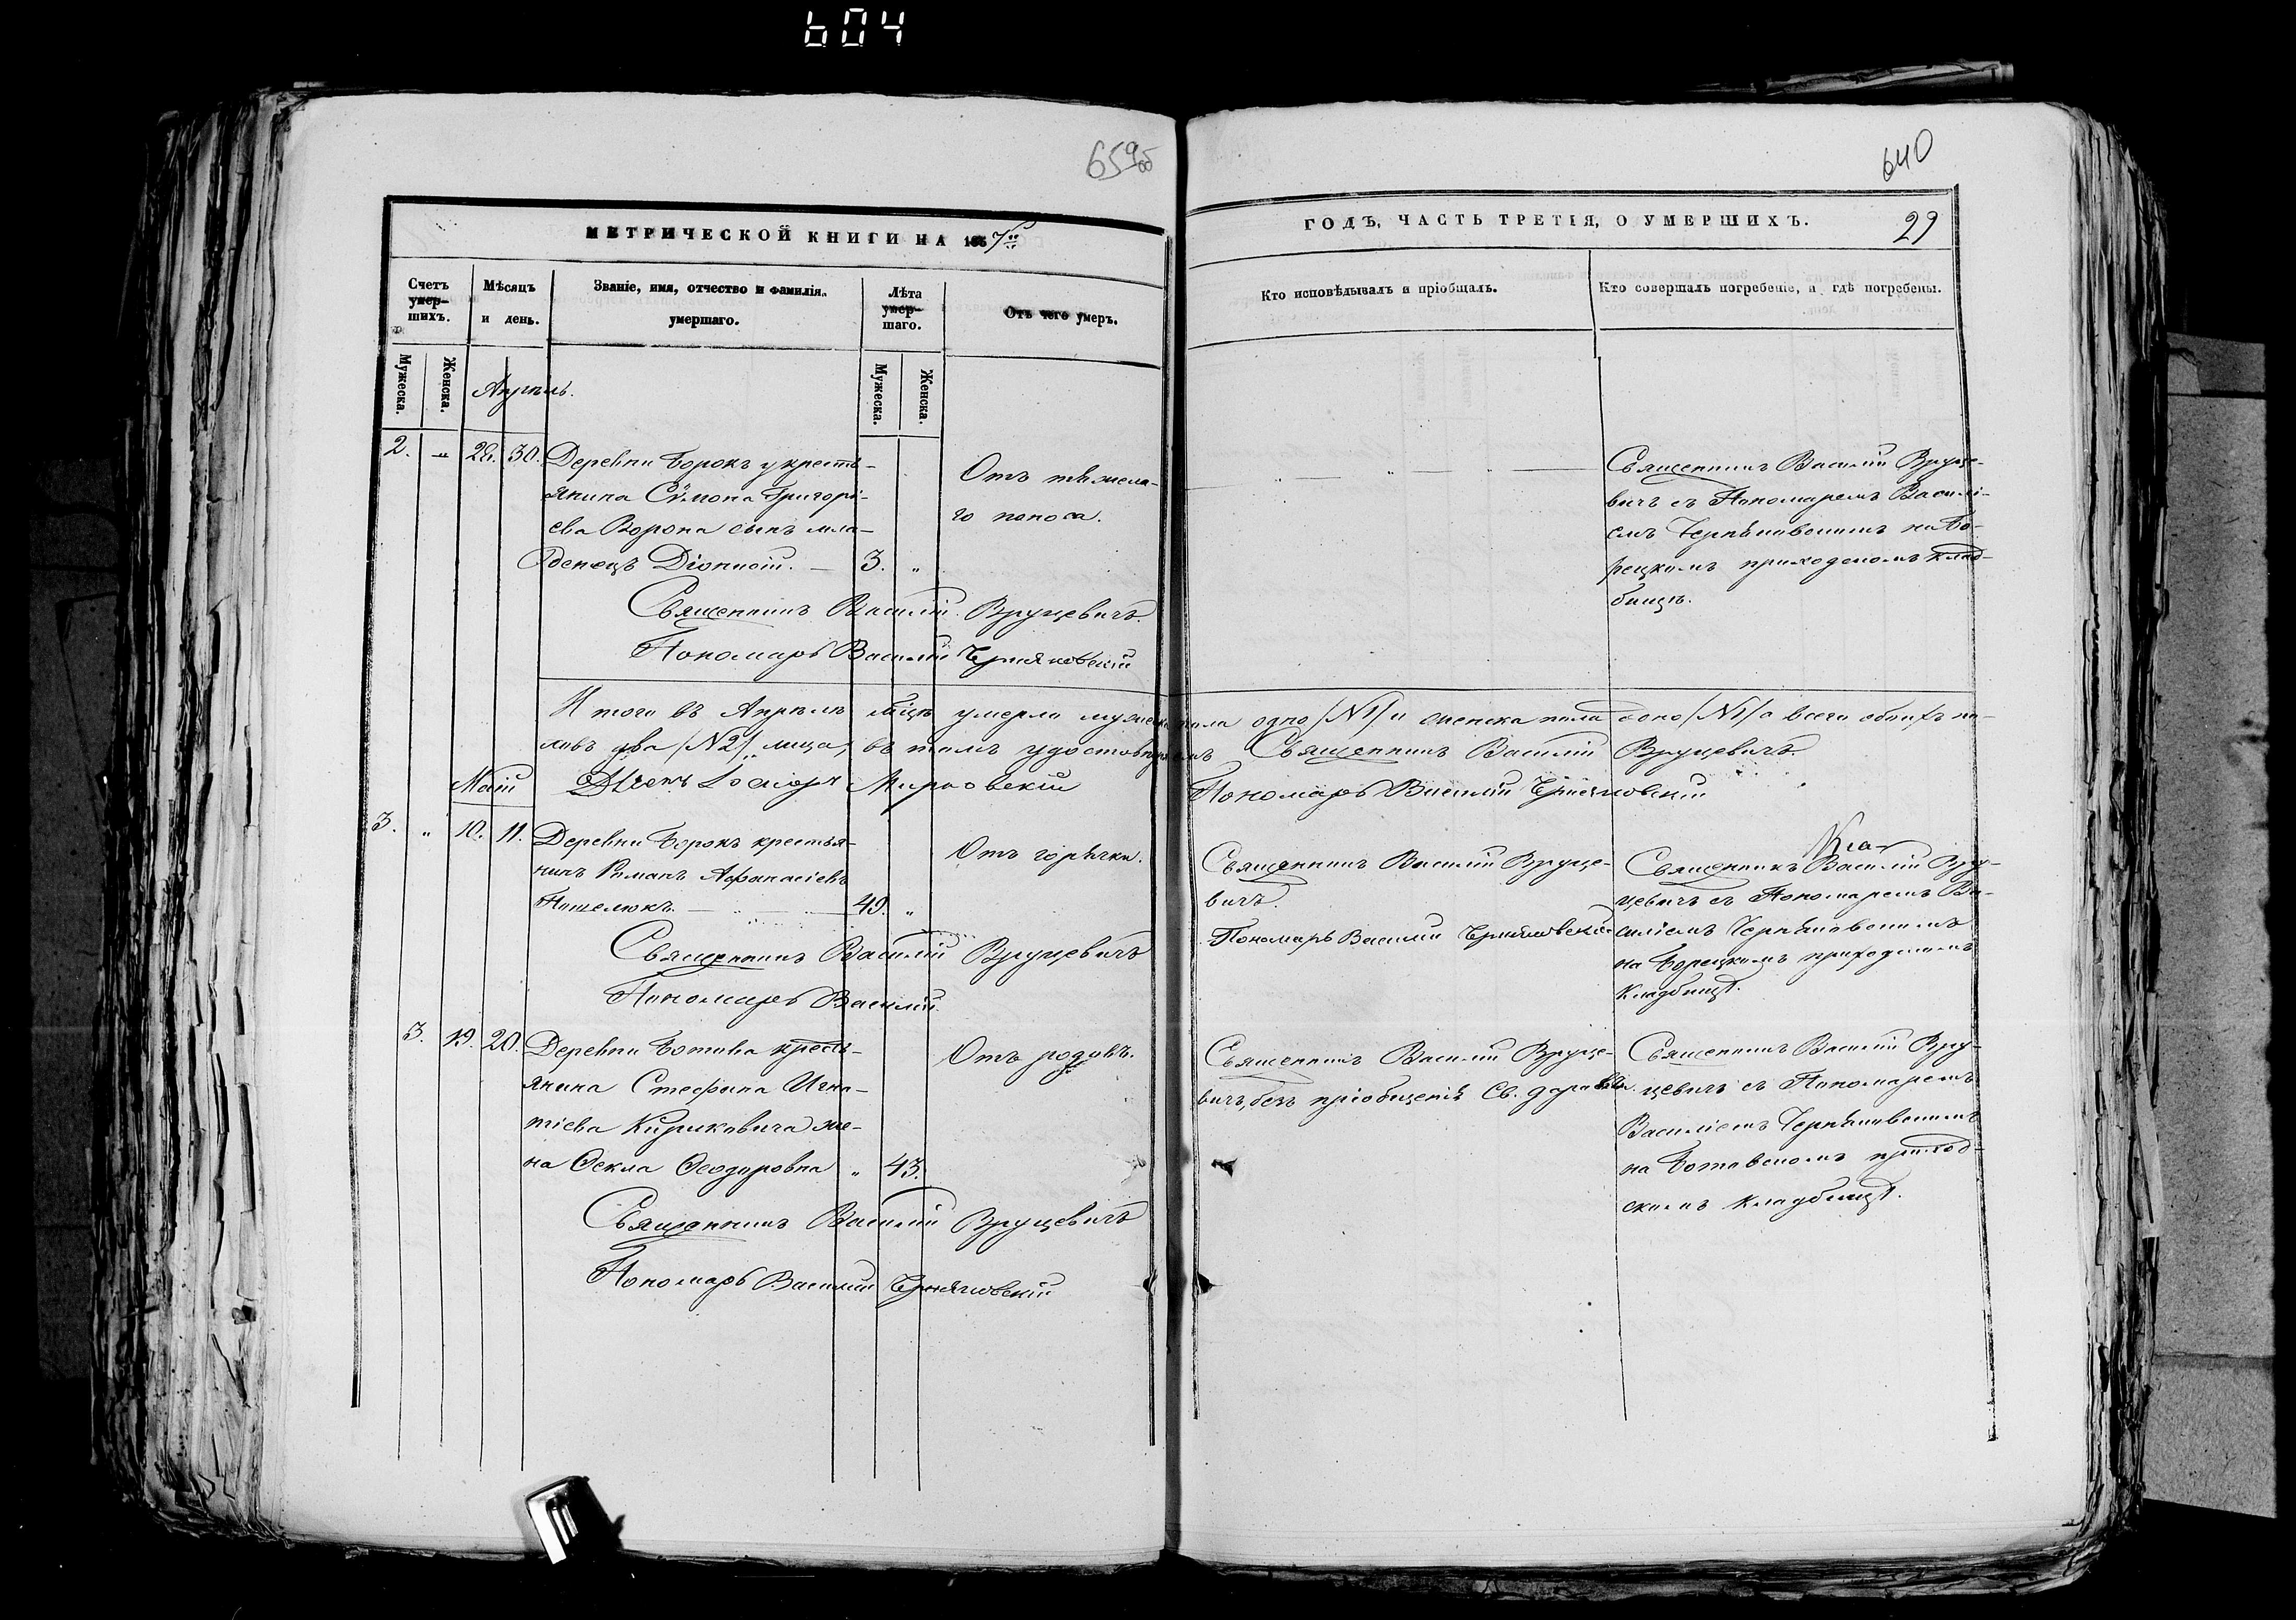 604
659об
640
МЕТРИЧЕСКОЙ КНИГИ НА 1857й
ГОДЪ, ЧАСТЬ ТРЕТІЯ, О УМЕРШИХЪ.
29
Счетъ умер-
шихъ.
Мѣсяцъ
и день.
Званіе, имя, отчество и фамилія
умершаго.
Лѣта
умер-
шаго.
Отъ чего умеръ.
Кто исповѣдывалъ и пріобщалъ.
Кто совершалъ погребеніе, и гдѣ погребены.
Мужеска.
Женска.
Мужеска.
Женска.
Апрѣль.
2. 28. 30. Деревни Борокъ у кресть-
янина Сѵмона Григорі-
ева Ворона сынъ мла-
денецъ Діонисій. 3. „
Отъ тяжела-
го поноса.
Священникъ Василій Вруце-
вичъ съ Пономаремъ Василі-
емъ Черняковскимъ на Бо-
рецкомъ приходскомъ клад-
бищѣ.
Священникъ Василій Вруцевичъ.
Пономарь Василій Черняковскій
Итого въ Апрѣлѣ мцѣ умерло мужеска пола одно /№1/ и женска пола одно /№1/ а всего обоихъ по-
ловъ два /№2/ лица, въ томъ удостовѣряемъ Священникъ Василій Вруцевичъ.
Мировскій
Пономарь Василій Черняковскій
Май
3. „ 10. 11. Деревни Борокъ крестья-
нинъ Романъ Афанасіевъ
49. „
Отъ горячки.
Священникъ Василій Вруце-
вичъ.
Пономарь Василій Черняковскій
Священникъ Василій Вру-
цевичъ съ Пономаремъ Ва-
силіемъ Черняковскимъ
на Борецкомъ приходскомъ
кладбищѣ.
Священникъ Василій Вруцевичъ
Пономарь Василій
3. 19. 20. Деревни Ботова кресть-
янина Стефана Игна-
тіева Кириковича же-
на Ѳекла Ѳеодоровна „ 43.
Отъ родовъ.
Священникъ Василій Вруце-
вичъ, безъ пріобщенія Св. даровъ
Священникъ Василій Вру-
цевичъ съ Пономаремъ
Василіемъ Черняковскимъ
на Ботовскомъ приход-
скомъ кладбищѣ.
Священникъ Василій Вруцевичъ
Пономарь Василій Черняковскій